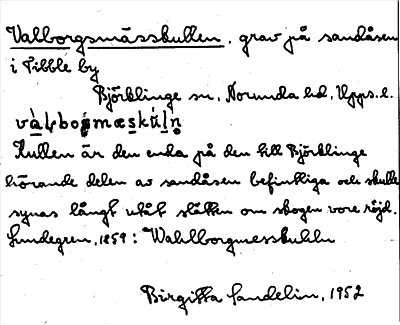 Valborgsmässkullen, grav på sandåsen
i Tibble by
Björklinge sn, Norunda hd, Upps. l.
Kullen är den enda på den till Björklinge
hörande delen av sandåsen befintliga och skulle
synas långt utåt slätten om skogen vore röjd.
Lundegren, 1859: Wahlborgmesskuhln
Birgitta Sandelin, 1952